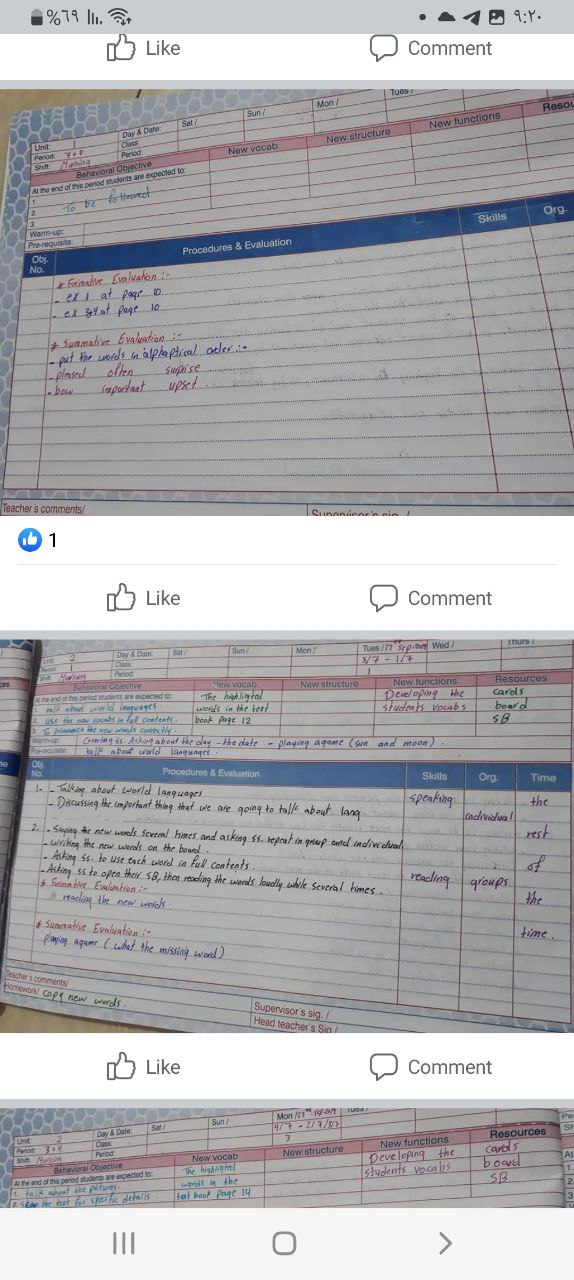 %٦٩
٩:٢٠
Like Comment
Unit: Day & Date: Sat / Sun / Mon / Tues /
Period: 7+8 Class:
Shift: Morning Period:
Behavioral Objective New vocab New structure New functions Resou
At the end of this period students are expected to:
1.
2. To be followed
3.
Warm-up:
Pre-requisite:
Obj. No. Procedures & Evaluation Skills Org.
* Formative Evaluation :-
- ex 1 at page 10
- ex 3,4 at page 10
* Summative Evaluation :-
- put the words in alphaptical order :-
- pleased often surprise
- bow important upset
Teacher's comments/ Supervisor's sig. /
1
Like Comment
Unit: 2 Day & Date: Sat / Sun / Mon / Tues / 17th Sep. 2019 Wed / Thurs /
Period: 1 Class: 3/7 - 1/7
Shift: Morning Period: 1
Behavioral Objective New vocab New structure New functions Resources
At the end of this period students are expected to: The highligted Developing the cards
1. talk about world languages words in the text students vocabs board
2. use the new vocabs in full contents. book page 12 SB
3. To pronounce the new words correctly.
Warm-up: Greeting ss. Asking about the day - the date - playing agame (sun and moon).
Pre-requisite: talk about world languages.
Obj. No. Procedures & Evaluation Skills Org. Time
1- - Talking about world languages speaking the
- Discussing the important thing that we are going to talk about lang. individual
2. - Saying the new words several times and asking ss. repeat in group and individual rest
- writing the new words on the board.
- Asking ss. to use each word in full contents. of
- Asking ss to open their SB, then reading the words loudly while several times. reading groups
* Formative Evaluation :- the
reading the new words.
* Summative Evaluation :- time.
playing agame (what the missing word)
Teacher's comments/
Homework/ copy new words.
Supervisor's sig. /
Head teacher's Sig /
Like Comment
Unit: 2 Day & Date: Sat / Sun / Mon / 23rd Sep. 2019 Tues /
Period: 3+4 Class: 4/7 - 2/7/3/7
Shift: Morning Period: 3
Behavioral Objective New vocab New structure New functions Resources
At the end of this period students are expected to: The highligted Developing the cards
1. talk about the pictures. words in the students vocabs board
2. scan the text for specific details text book page 14 SB